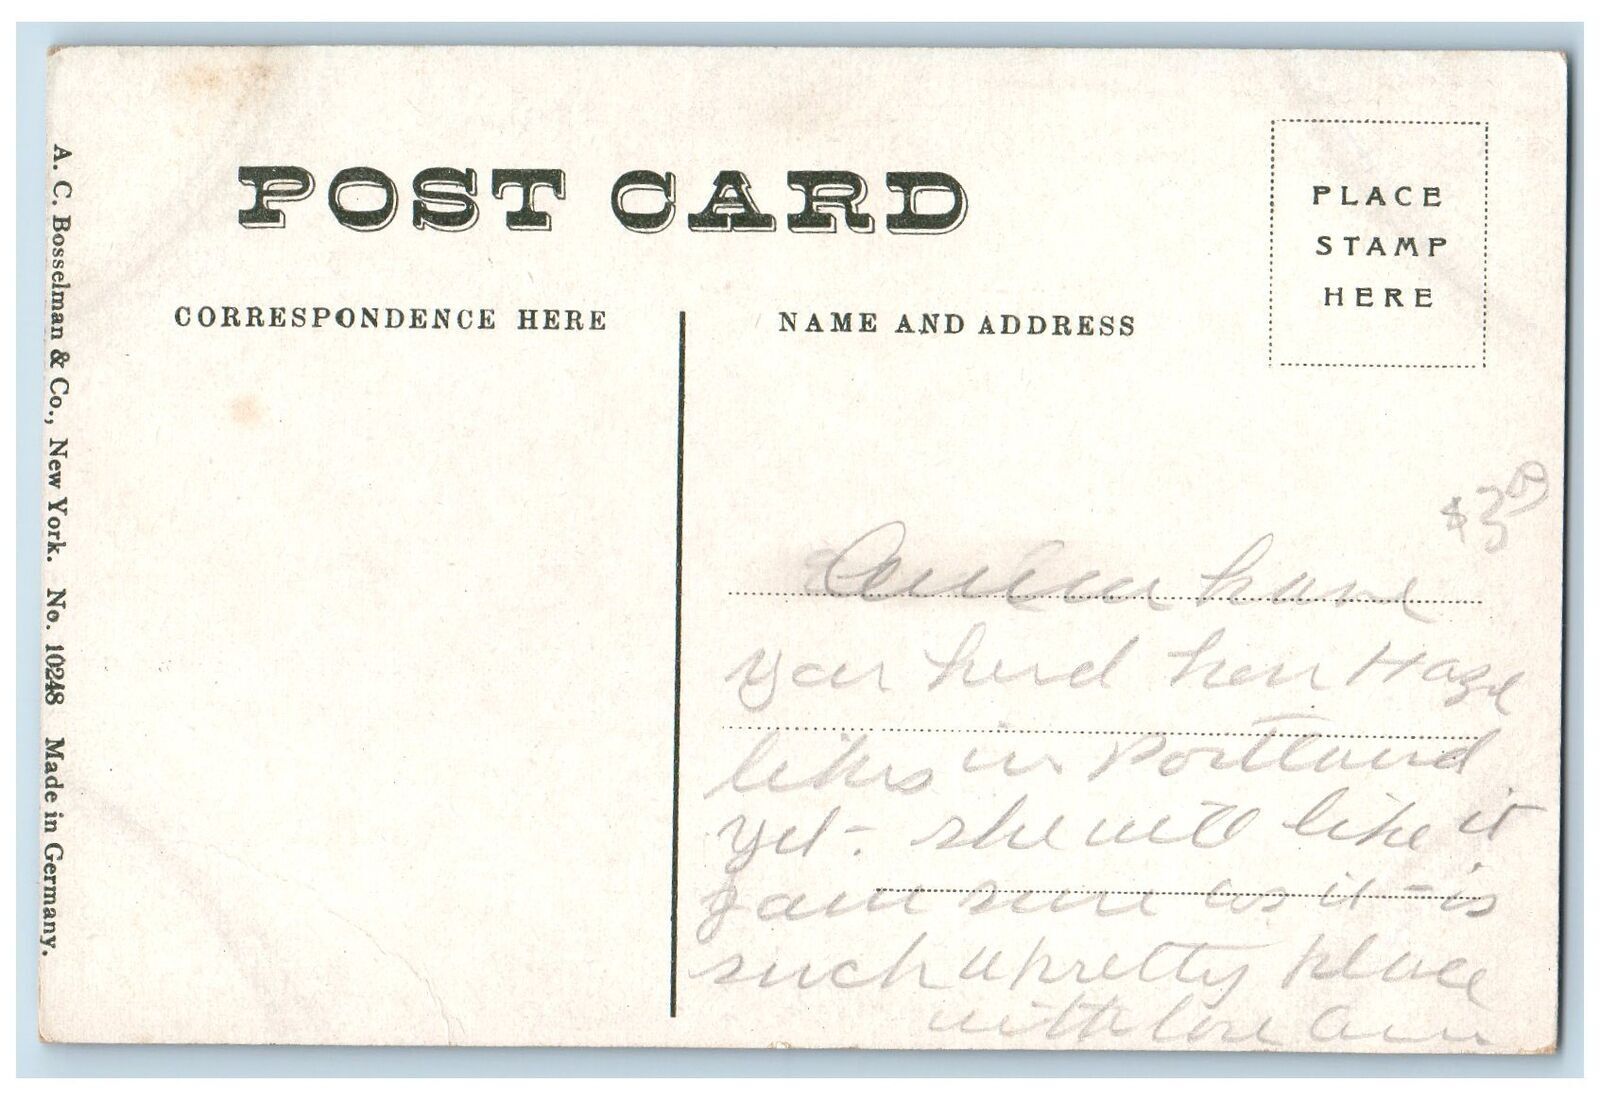 POST CARD
PLACE
STAMP
HERE
CORRESPONDENCE HERE
NAME AND ADDRESS
A. C. Bosselman & Co., New York. No. 10248 Made in Germany.
$3
have
you herd how Hazel
likes in Portland
yet - she will like it
I am sure as it - is
such a pretty place
with love